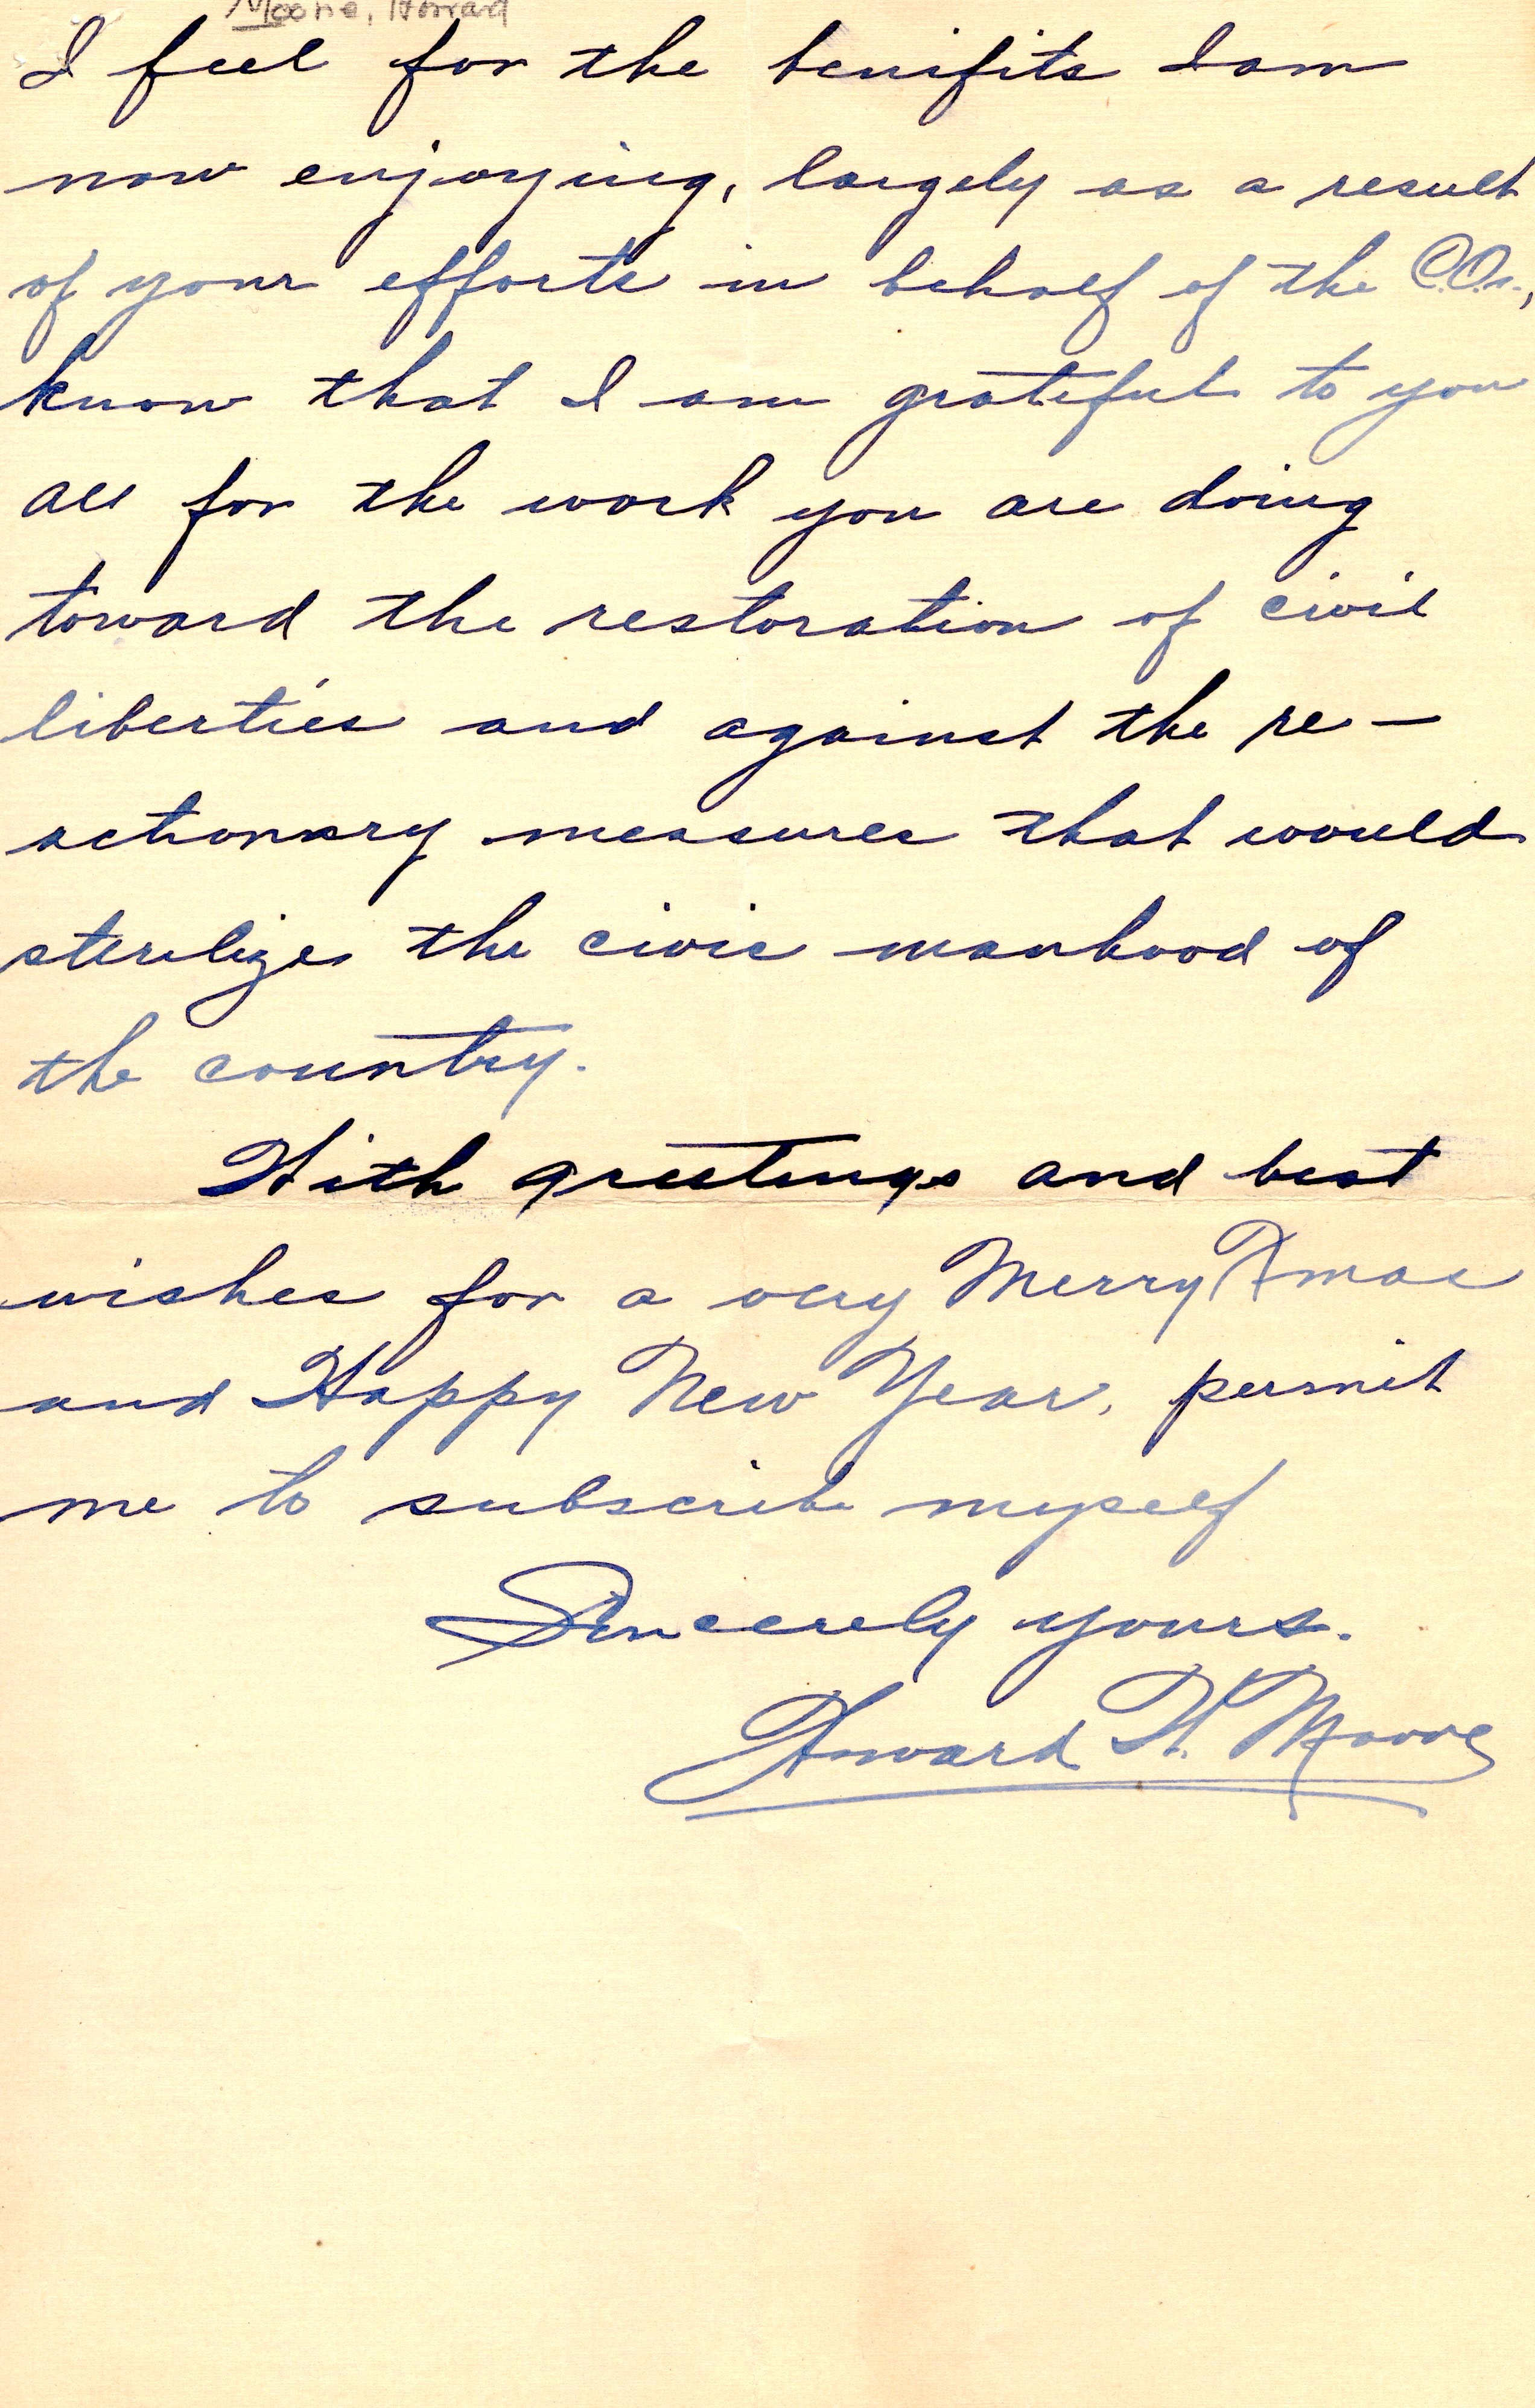 Moore, Howard
I feel for the benifits I am
now enjoying, largely as a result
of your efforts in behalf of the C.O.s.,
know that I am grateful to you
all for the work you are doing
toward the restoration of civil
liberties and against the re-
actionary measures that would
sterilize the civic manhood of
the country.
With greetings and best
wishes for a very Merry Xmas
and Happy New Year, permit
me to subscribe myself
Sincerely yours.
Howard W. Moore